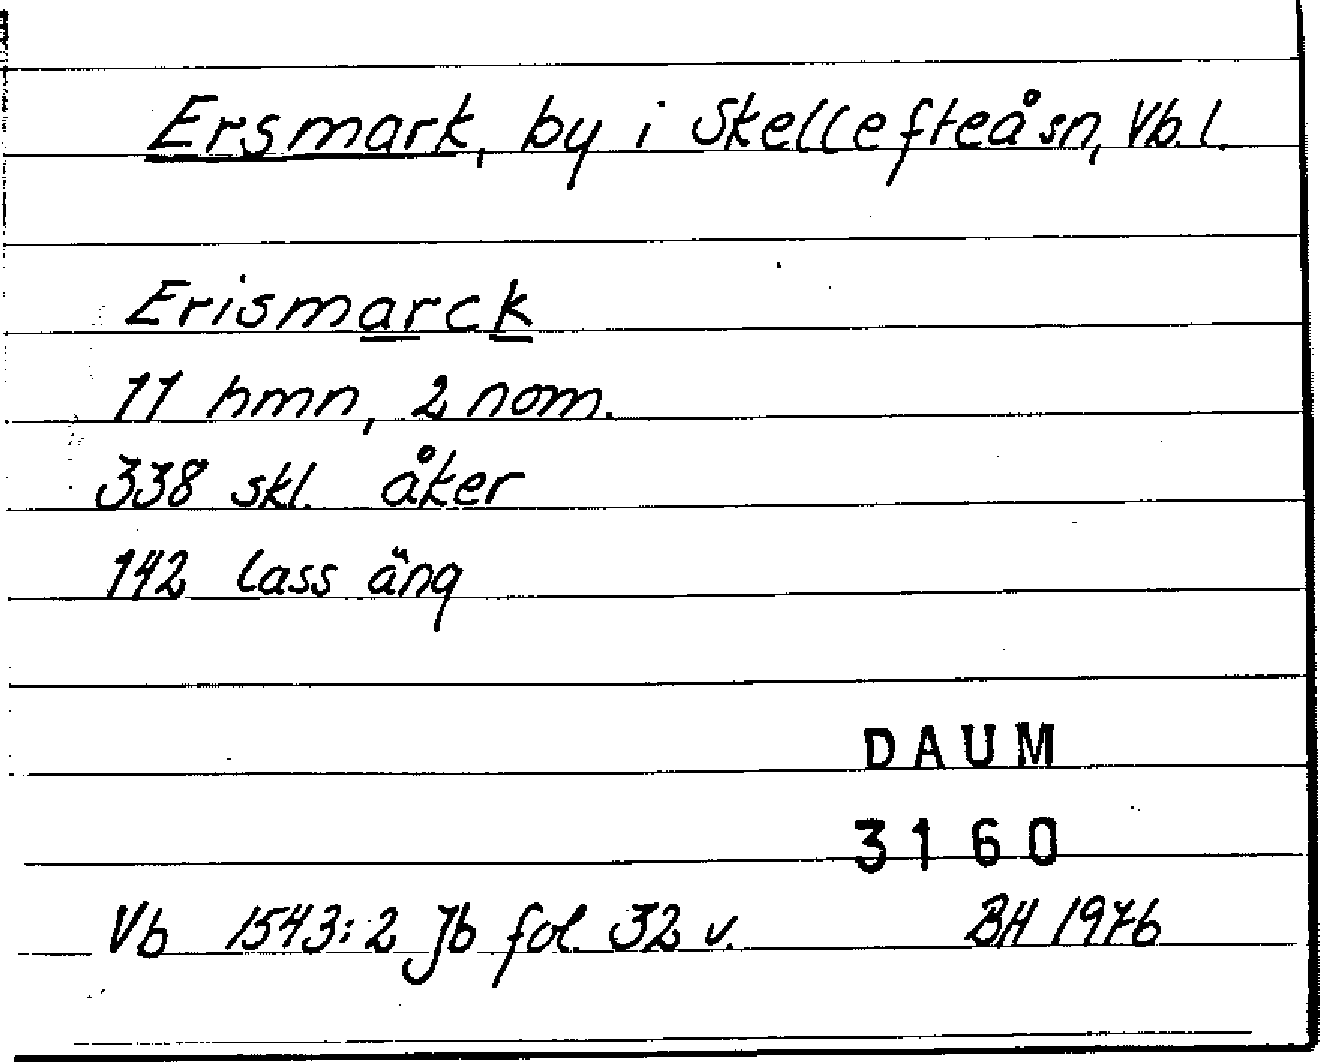 Ersmark, by i Skellefteå sn, Vb. l.
Erismarck
11 hmn, 2 nom.
338 skl. åker
142 lass äng
DAUM
3160
Vb 1543:2 Jb fol. 32 v. BH 1976